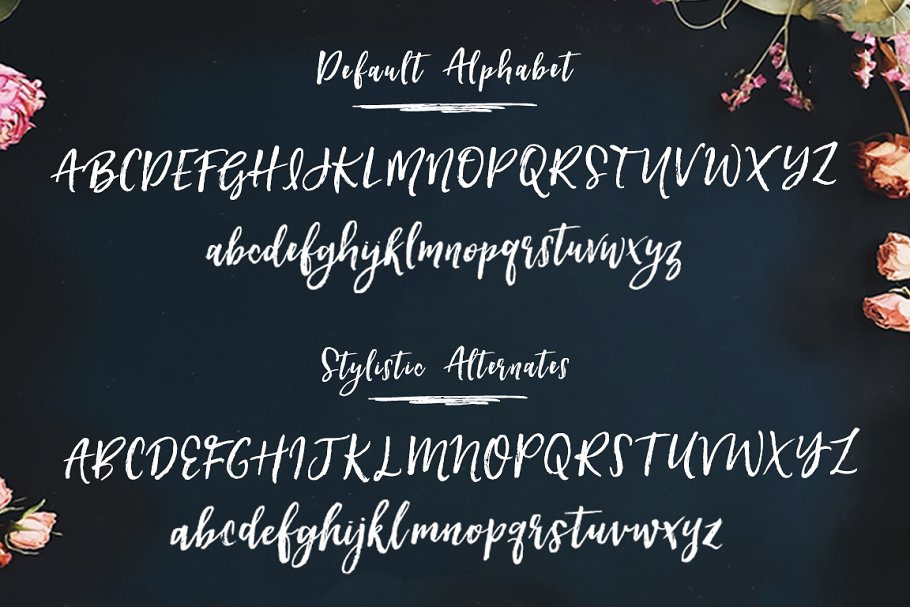 Default Alphabet
ABCDEFGHIJKLMNOPQRSTUVWXYZ
abcdefghijklmnopqrstuvwxyz
Stylistic Alternates
ABCDEFGHIJKLMNOPQRSTUVWXYZ
abcdefghijklmnopqrstuvwxyz